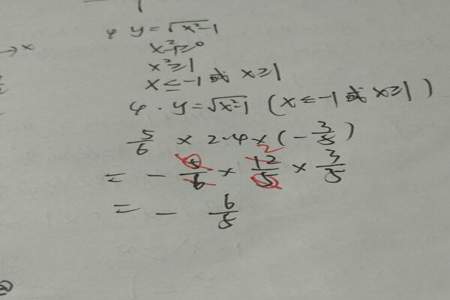 y=√x²-1
x²-1≥0
x²≥1
x≤-1 或 x≥1
φ. y=√x²-1 (x≤-1 或 x≥1)
5/6 × 2.4 × (-3/5)
= - 5/6 × 12/5 × 3/5
2
= - 6/5
→x